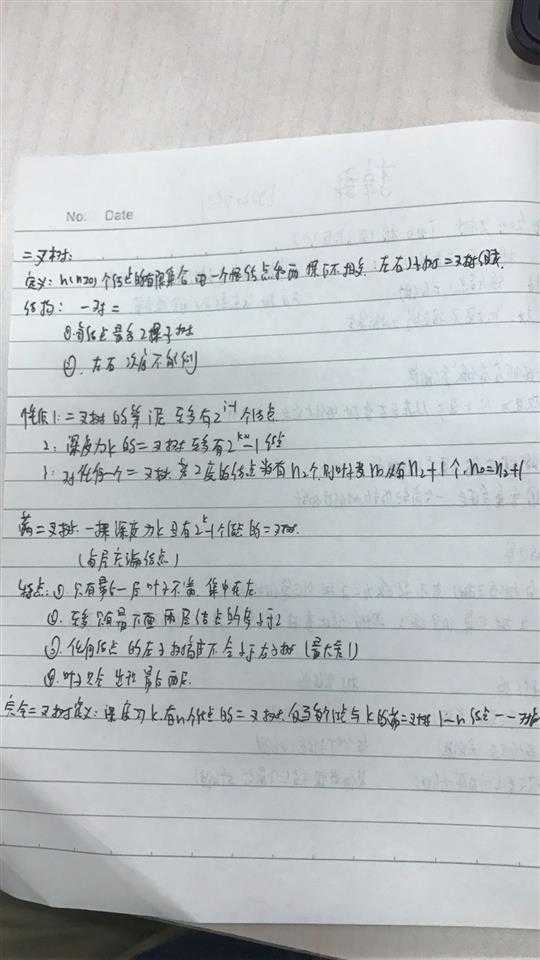 No. Date
二叉树:
定义: n(n≥0)个结点的有限集合 由一个根结点和两棵互不相交 左右子树 二叉树组成
结构: 一对二
①.每结点最多2棵子树
②. 左右 次序不能
性质1: 二叉树的第i层 至多有2^(i-1)个结点
2: 深度为k的二叉树至多有2^k-1结点
3: 对任何一个二叉树 若2度的结点数有n₂个,则叶子数n₀必有n₂+1个. n₀=n₂+1
满二叉树 一棵深度为k且有2^k-1个结点的二叉树.
(每层充满结点)
特点: ① 只有最后一层叶子不满 集中在左
②. 至多只有最下面两层结点的度小于2
③. 任何结点的左子树高度不会小于右子树 (最大差1)
④. 叶子只会出现最后两层.
完全二叉树定义: 深度为k.有n个结点的二叉树 仅当每个结点与k的满二叉树1—n结点一一对应